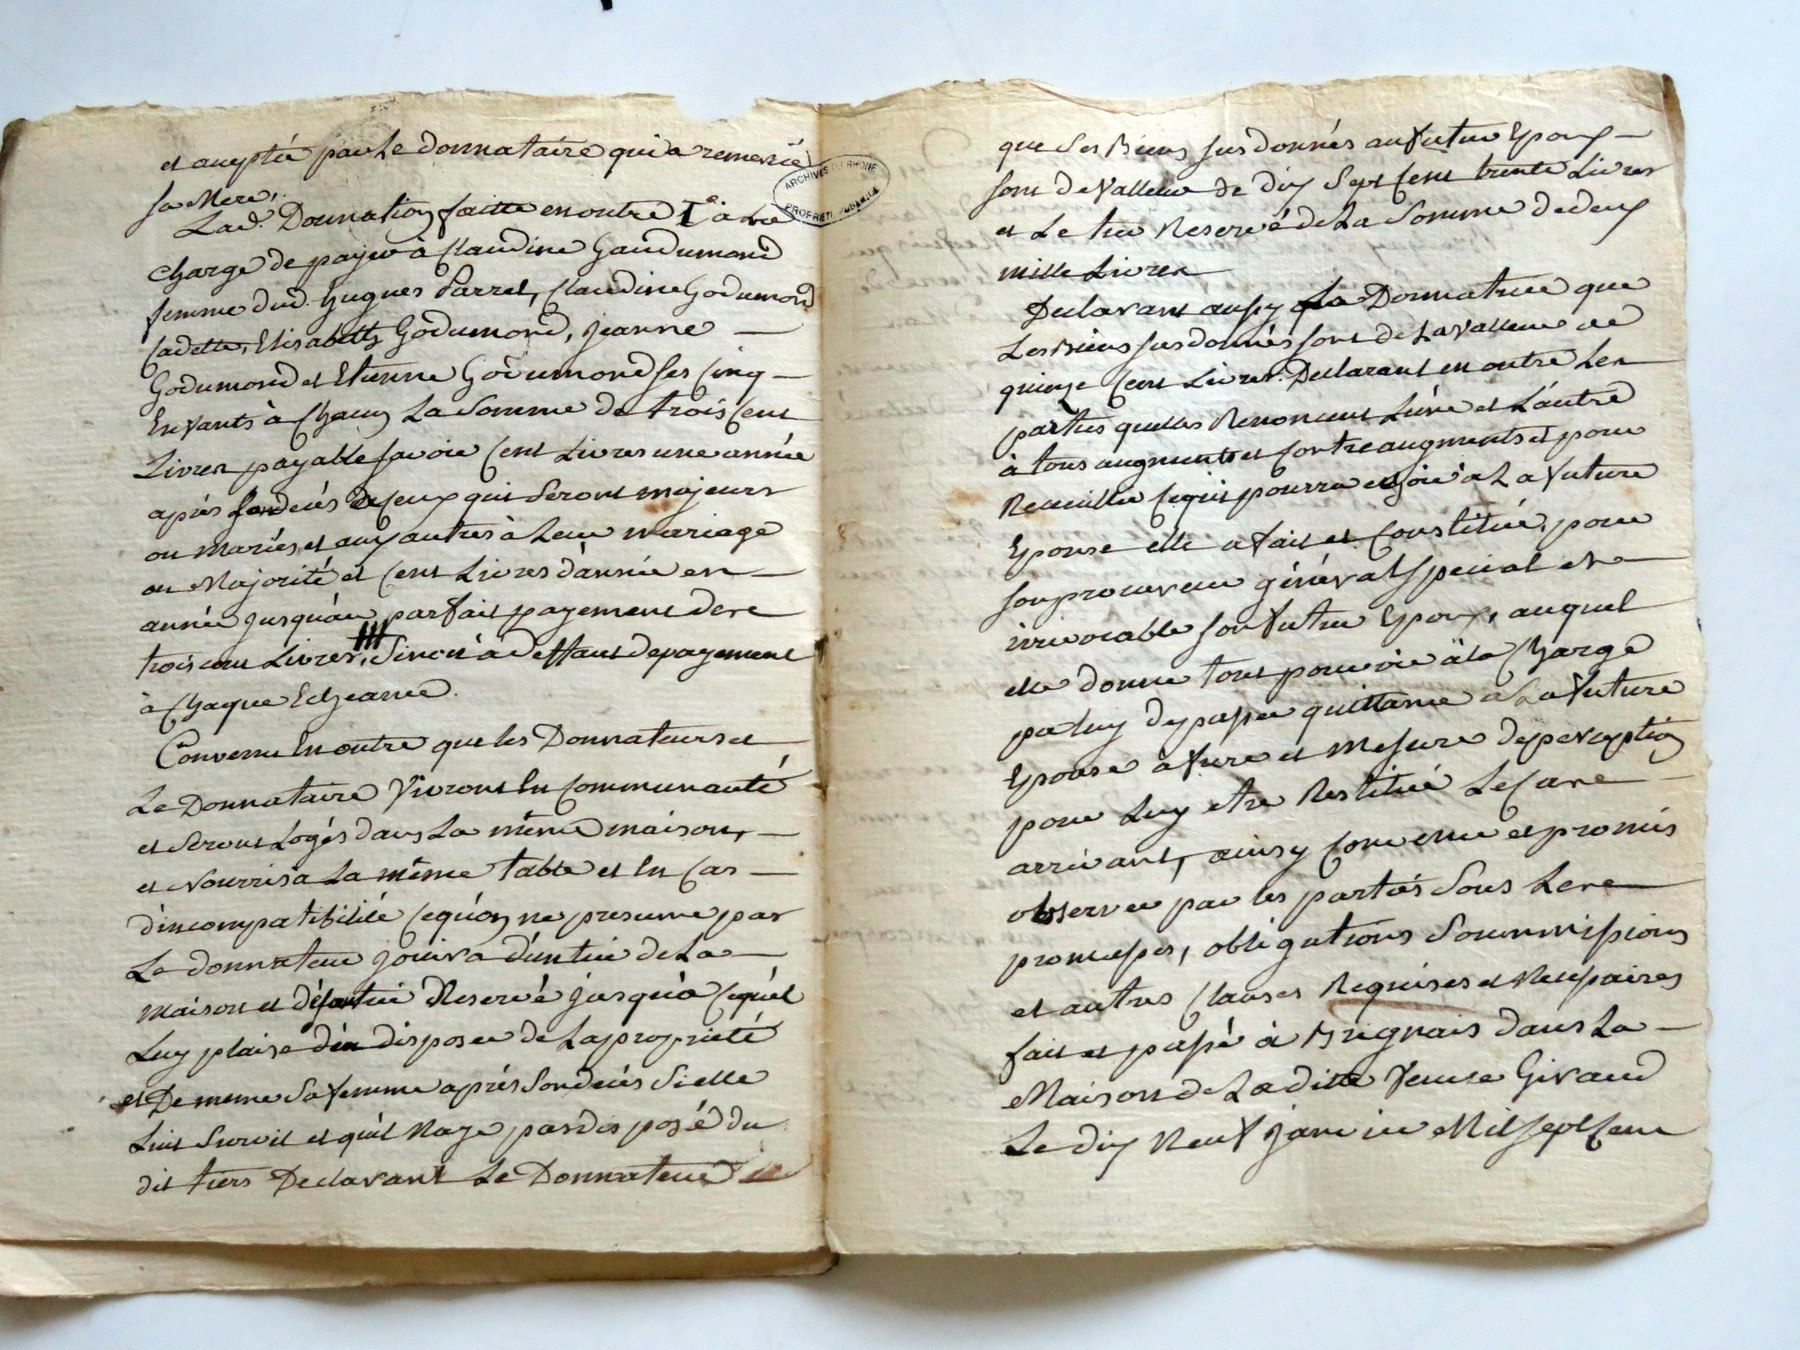 et acceptée par Le donnataire qui a remercié
sa Mere,
ARCHIVES DU RHONE
PROPRIETE PUBLIQUE
Lad. Donnation faitte en outre à La
charge de payer à Claudine Gaudumond
femme dud. hugues Parret, Claudine Godumond
Cadette, Elisabeth Godumond, jeanne
Godumond et Etienne Godumond ses Cinq
Enfants à Chacun La Somme de trois Cent
Livres payable savoir Cent Livres une année
aprés Son decés à Ceux qui Seront majeurs
ou mariés, et aux autres à Leur mariage
ou Majorité et Cent Livres d'année en
année jusqu'au parfait payement de
trois cent Livres, Sinon à deffaut de payement
à Chaque Echeance.
Convenu En outre que les Donnateurs et
Le Donnataire Vivront En Communauté
et Seront Logés dans La même maison,
et Nourris à La même table et En Cas
d'incompatibilité Ce qu'on ne presume pas
Le donnateur jouira d'un tier de La
Maison et Reservé jusqu'à Ce qu'il
Luy plaise d'en disposer de La proprieté
et De meme Sa femme aprés Son decés Si elle
Luit Survit et qu'il N'aye pas disposé du
dit tiers Declarant Le Donnateur
que Ses Biens Sus donnés au futur Epoux
Sont de Valleur de dix Sept Cent trente Livres
et Le tier Reservé de La Somme de deux
mille Livres
Declarant aussy La Donnatrice que
Les Biens Sus donnés sont de La Valleur de
quinze Cent Livres. Declarant en outre Les
parties quelles Renoncent L'une et L'autre
à tous augments et Contreaugments et pour
Recueillir Ce qui pourra echoir à La future
Epouse elle a fait et Constitué, pour
son procureur général special et
irrevocable son futur Epoux, auquel
elle donne tout pouvoir à la Charge
par luy d'y passer quittance à La future
Epouse à fure et Mesure de perception
pour Luy etre Restitué Le Cas
arrivant, ainsy Convenu et promis
observer par les parties Sous Les
promesses, obligations Soummissions
et autres Clauses Requises et Necessaires
fait et passé à Brignais dans La
Maison de La ditte Veuve Giraud
Le dix Neuf janvier Mil sept Cent